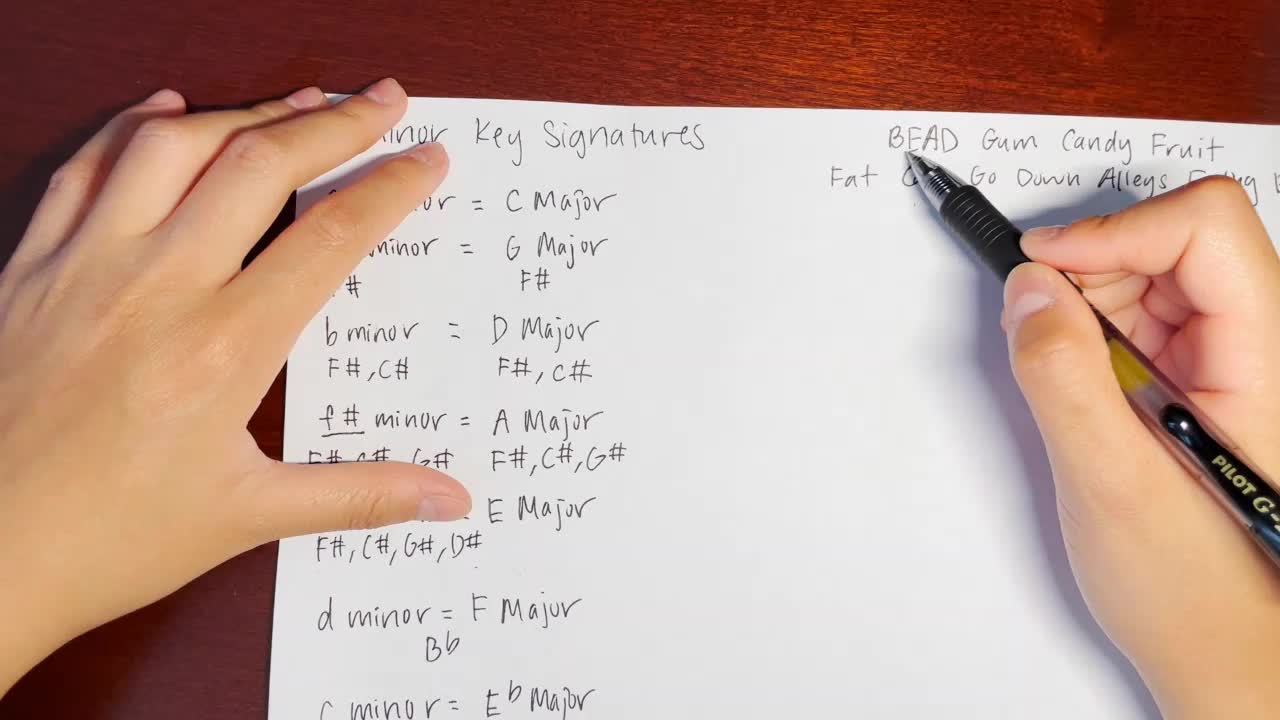 Key Signatures
= C Major
minor = G Major
# F#
b minor = D Major
F#, C# F#, C#
f# minor = A Major
G# F#, C#, G#
E Major
F#, C#, G#, D#
d minor = F Major
Bb
c minor = Eb Major
BEAD Gum Candy Fruit
Fat Go Down Alleys
PILOT G-2